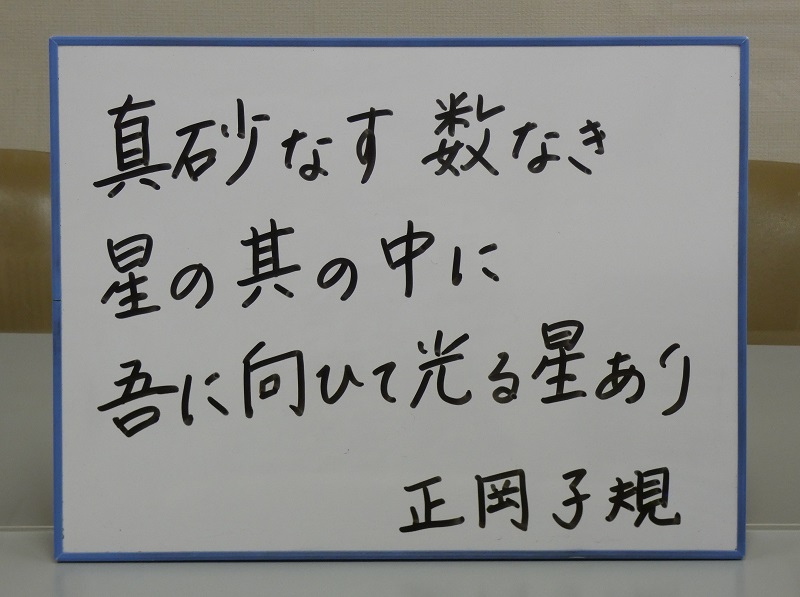 真砂なす 数なき
星の其の中に
吾に向ひて光る星あり
正岡子規